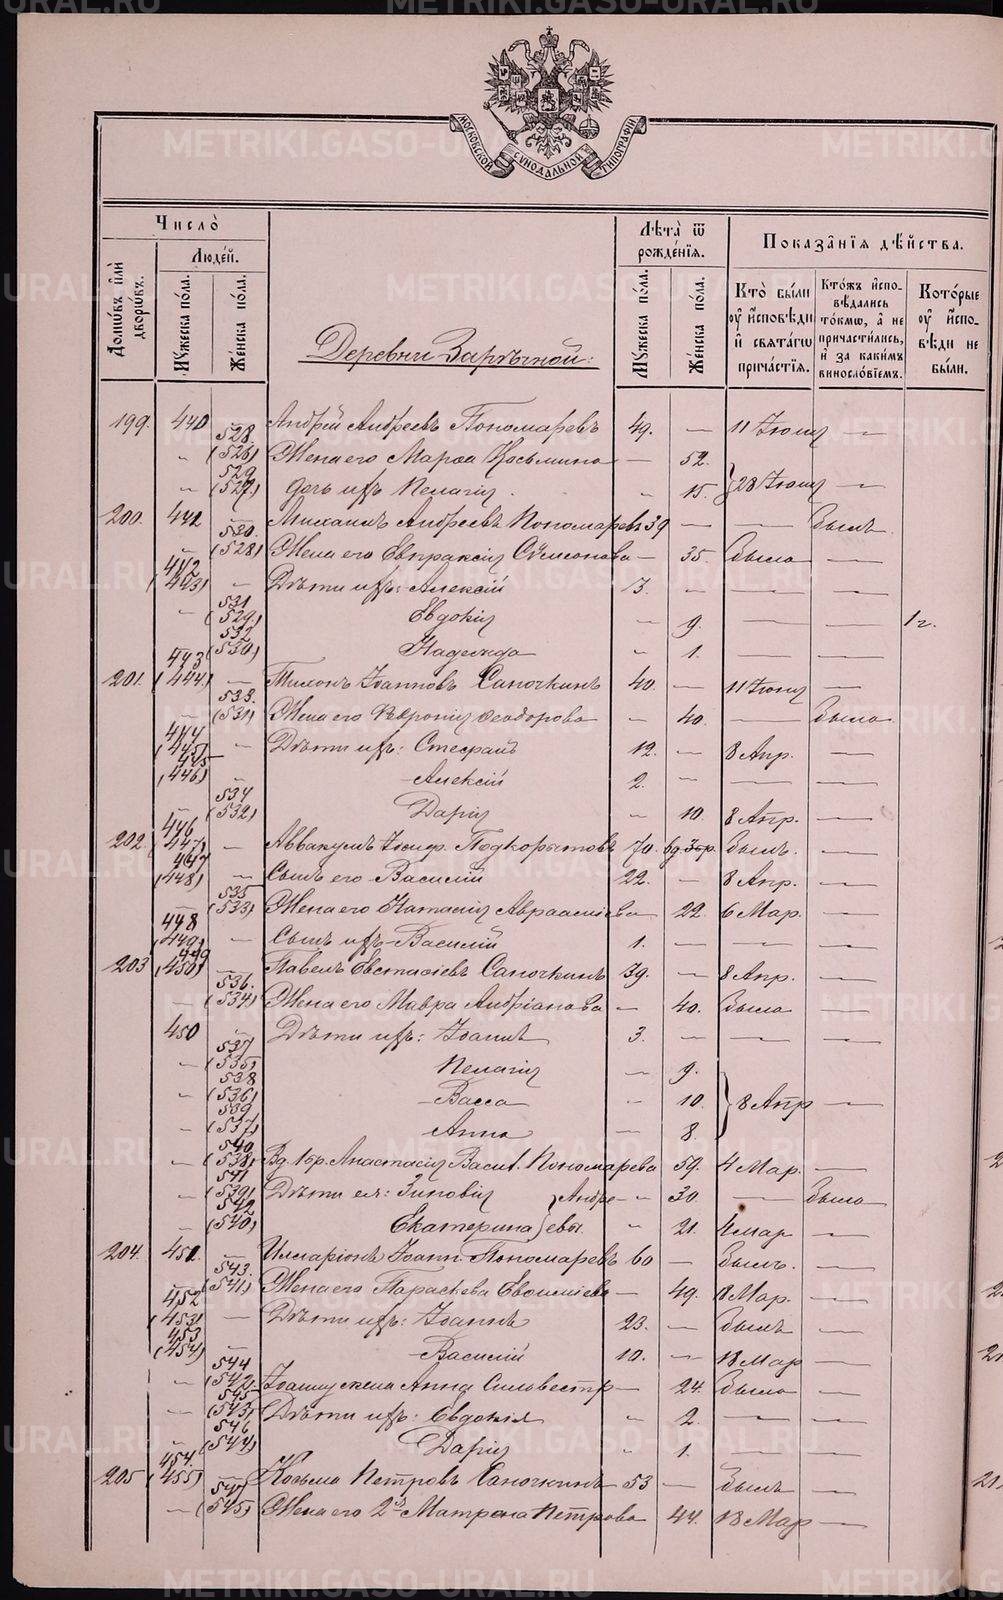 METRIKI.GASO-URAL.RU
МОСКОВСКОЙ СѴНОДАЛЬНОЙ ТИПОГРАФІИ
Число̀
Людей.
Лѣта ѿ рожденїѧ.
Показанїѧ дѣйства.
Домѡвъ или дворѡвъ.
Мужеска пола.
Женска пола.
Деревни Зарѣчной:
Мужеска пола.
Женска пола.
Кто были у исповѣди и свѧтагѡ причастїѧ.
Ктожъ исповѣдались токмѡ, а не причастились, и за какимъ винословїемъ.
Которые у исповѣди не были.
199. 440 Андрей Андреевъ Пономаревъ 49. — 11 Іюня —
528. (526) Жена его Марѳа Косьмина — 52.
529 (527) Дочь ихъ Пелагія. 15. } 28 Іюня —
200. 441 — Михаилъ Андреевъ Пономаревъ 39 — — Былъ
530. (528) Жена его Евпраксія Сѵмеонова — 35. Была —
442 (443) — Дѣти ихъ: Алексій 3. — — —
531 (529) Евдокія — 9. — — 1 г.
532 (530) Надежда — 1. — —
201. 443 (444) — Тихонъ Іоанновъ Саночкинъ 40. — 11 Іюня —
533. (531) Жена его Ѳеѵронія Ѳеодорова — 40. — Была
444 (445) — Дѣти ихъ: Стефанъ 12. — 8 Апр. —
445 (446) — Алексій 2. — — —
534 (532) Дарія — 10. 8 Апр. —
202. 446 (447) — Аввакумъ Іосиф. Подкорытовъ 70. Былъ. —
447 (448) — Сынъ его Василій 22. — 8 Апр. —
535 (533) Жена его Наталія Авраамова — 22. 6 Мар. —
448 (449) — Сынъ ихъ Василій 1. — — —
203 449 (450) — Павелъ Евстафіевъ Саночкинъ 39. — 8 Апр. —
536. (534) Жена его Мавра Андріанова — 40. Была —
450 — Дѣти ихъ: Іоаннъ 3. — — —
537 (535) Пелагія — 9.
538 (536) Васса — 10. } 8 Апр —
539 (537) Анна — 8.
540 (538) Вд. Анастасія Васил. Пономарева 59. 4 Мар. —
541 (539) Дѣти ея: Зиновія } Андре- — 30. — Была
542 (540) Екатерина } евы. — 21. 4 мар —
204. 451. — Илларіонъ Іоанн. Пономаревъ 60 — Былъ. —
543. (541) Жена его Параскева — 49. 8 Мар. —
452 (453) — Дѣти ихъ: Іоаннъ 23. — Былъ —
453 (454) Василій 10. — 18 Мар —
544 (542) Іоанну жена Анна Сильвестр. — 24. Была —
545 (543) Дѣти ихъ: Евдокія — 2. — —
546 (544) Дарія — 1. — —
205 454. (455) — Косьма Петровъ Саночкинъ 53 — Былъ —
547 (545) Жена его 2я Матрона Петрова 44. 18 Мар —